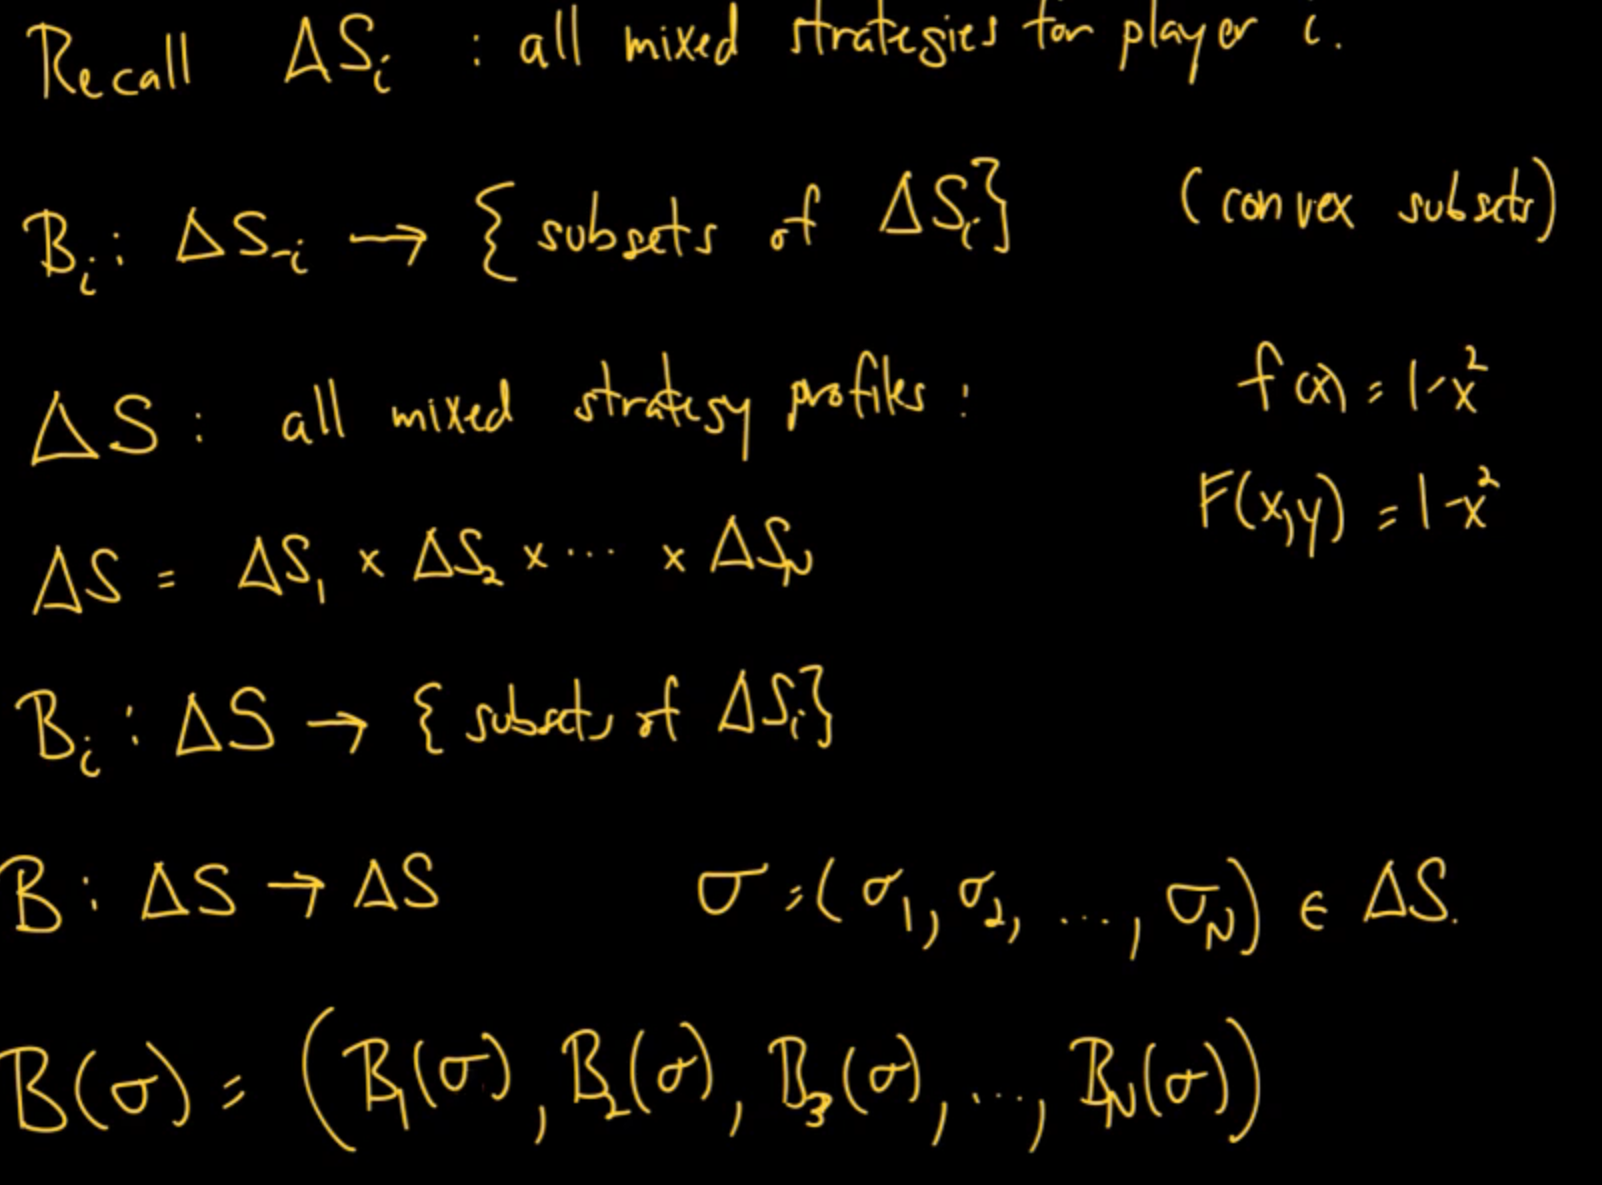 Recall ΔSᵢ : all mixed strategies for player i.
Bᵢ : ΔS₋ᵢ → { subsets of ΔSᵢ } (convex subsets)
ΔS : all mixed strategy profiles :
f(x) = 1-x²
F(x,y) = 1-x²
ΔS = ΔS₁ × ΔS₂ × ... × ΔS_N
Bᵢ : ΔS → { subsets of ΔSᵢ }
B : ΔS → ΔS σ = (σ₁, σ₂, ..., σ_N) ∈ ΔS.
B(σ) = (B₁(σ), B₂(σ), B₃(σ), ..., B_N(σ))